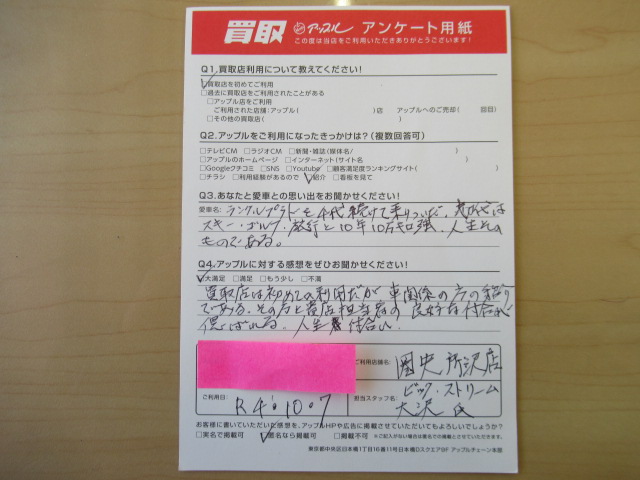 買取 アップル アンケート用紙
この度は当店をご利用いただきありがとうございます!
Q1.買取店利用について教えてください!
☑買取店を初めてご利用
□過去に買取店をご利用されたことがある
□アップル店をご利用
ご利用された店舗:アップル( )店 アップルへのご売却( 回目)
□その他の買取店( )
Q2.アップルをご利用になったきっかけは?(複数回答可)
□テレビCM □ラジオCM □新聞・雑誌(媒体名/ )
□アップルのホームページ □インターネット(サイト名 )
□Googleクチコミ □SNS □Youtube □顧客満足度ランキングサイト( )
□チラシ □利用経験があるので ☑紹介 □看板を見て
Q3.あなたと愛車との思い出をお聞かせください!
愛車名: ランクルプラドを4代続けて乗りついだ。
スキー・ゴルフ、旅行と10年10万キロ強、人生その
ものである。
Q4.アップルに対する感想をぜひお聞かせください!
☑大満足 □満足 □もう少し □不満
買取店は初めての利用だが車関係の方の紹介
である。その方と貴店担当者の良好な付合いが
偲ばれる。人生 付合い
ご利用店舗名: 国史所沢店
ご利用日: R4.10.7
担当スタッフ名: ビッグ・ストリーム
大沢氏
お客様に書いていただいた感想を、アップルHPや広告に掲載させていただいてもよろしいでしょうか?
□実名で掲載可 ☑匿名なら掲載可 □掲載不可 ※ご記入がない場合は匿名での掲載とさせていただきます。
東京都中央区日本橋1丁目16番11号日本橋Dスクエア9F アップルチェーン本部